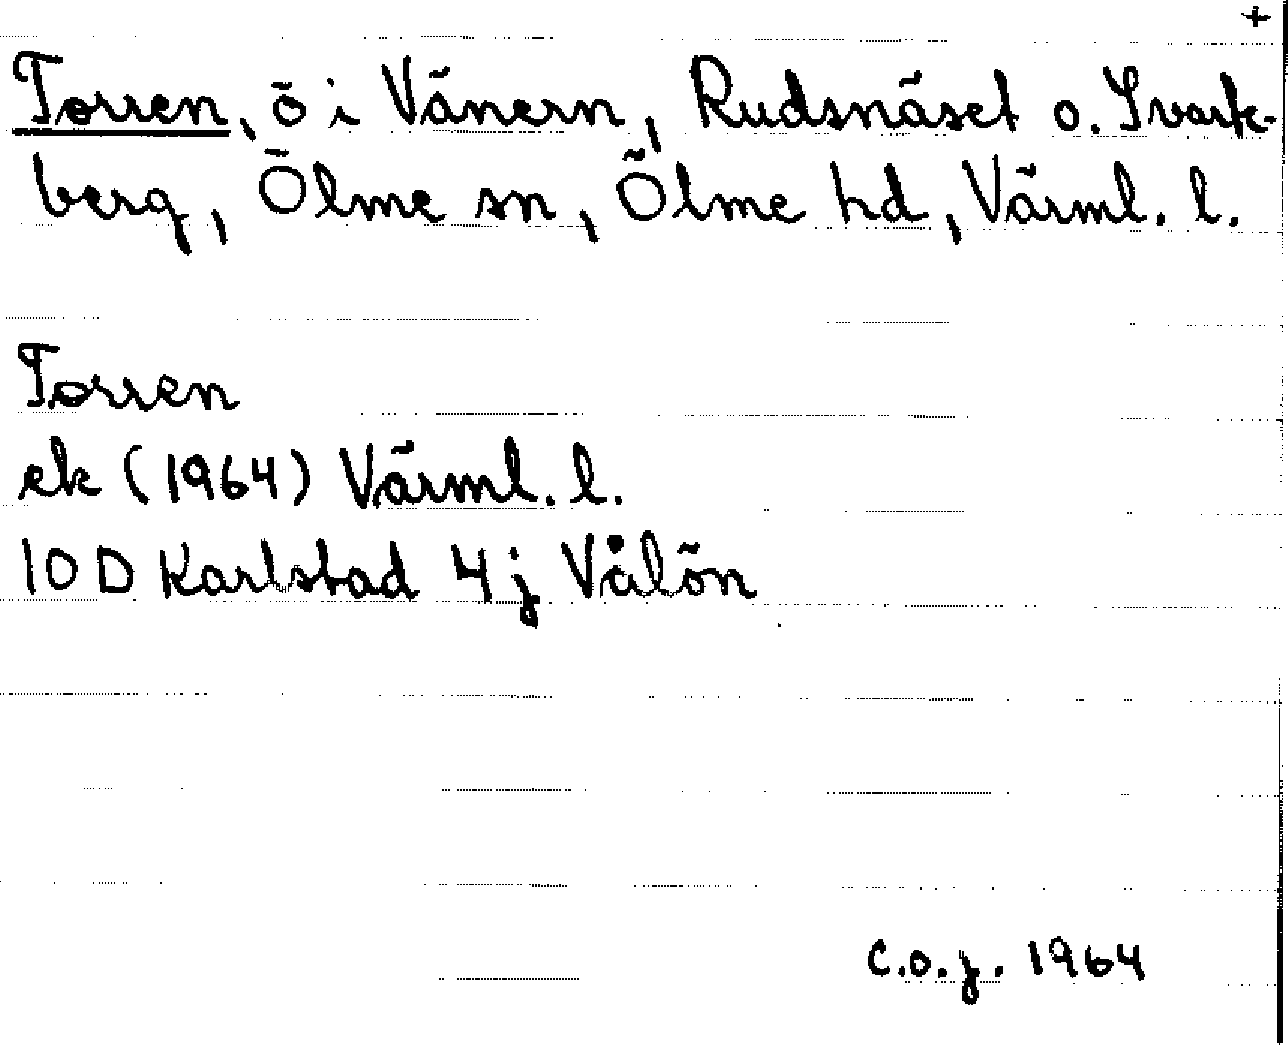 +
Torren, ö i Vänern, Rudsnäset o. Svart-
berg, Ölme sn, Ölme hd, Värml. l.
Torren
ek (1964) Värml. l.
10 D Karlstad 4 j Vålön
C.O.J. 1964